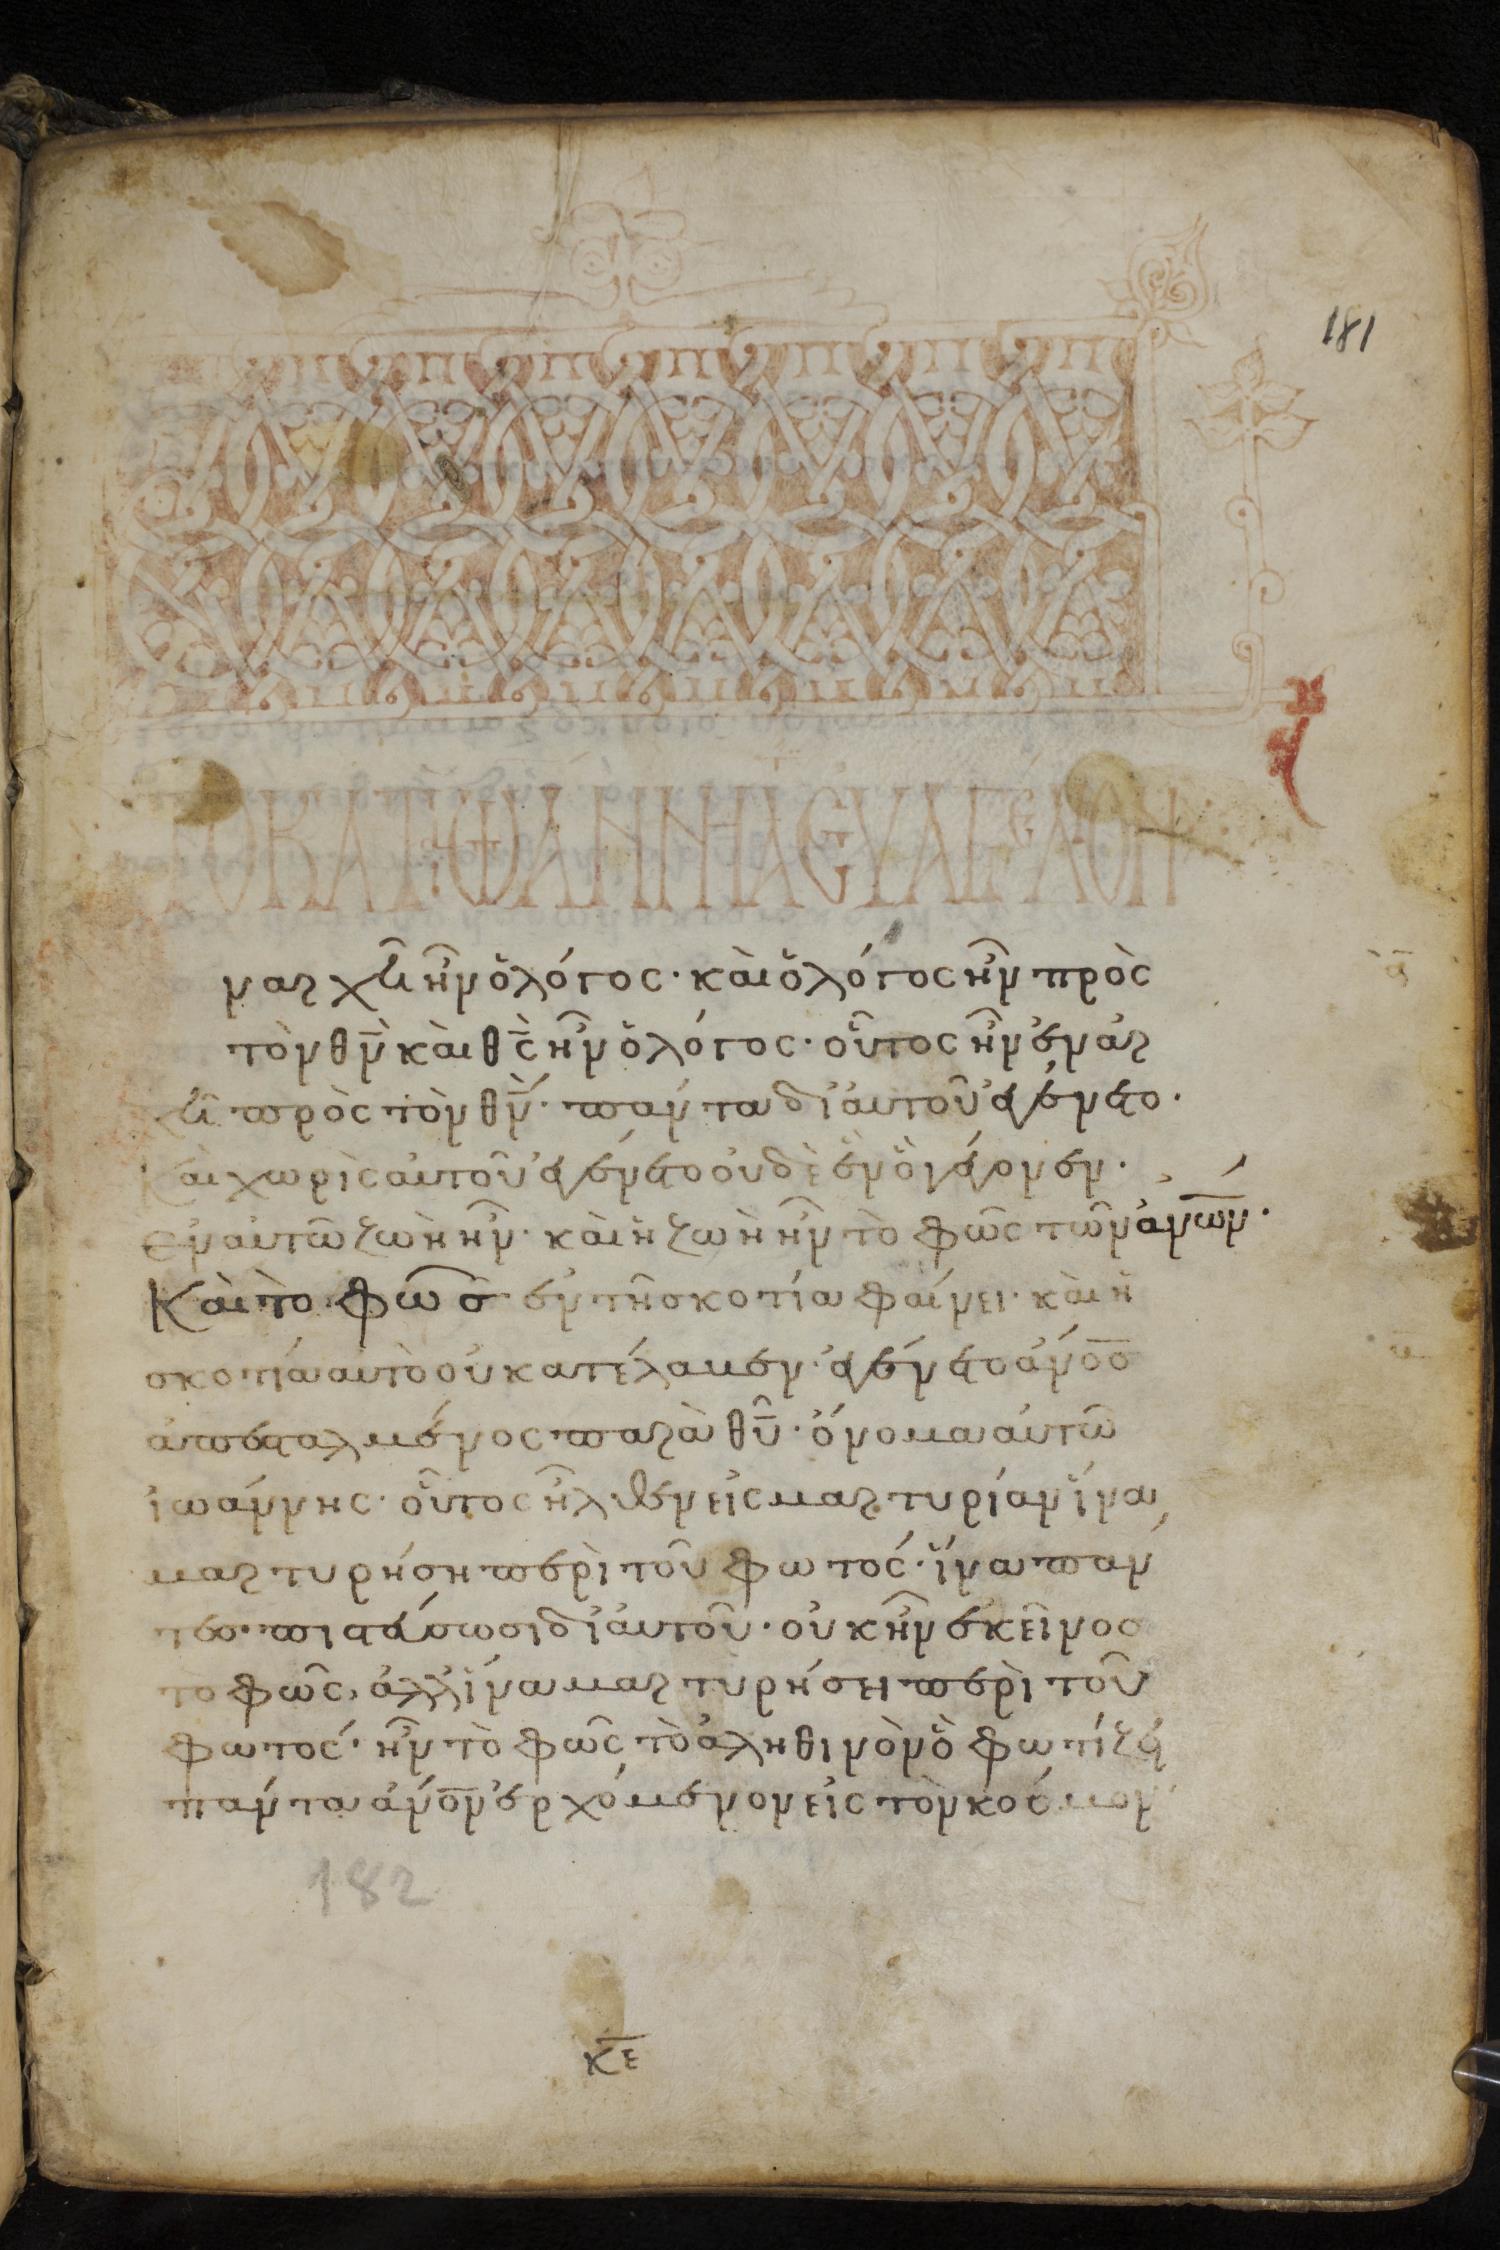 181
ΤΟ ΚΑΤΑ ΙΩΑΝΝΗΝ ΑΓ ΕΥΑΓΓΕΛΙΟΝ
ν αρχῆ ἦν ὁ λόγος· καὶ ὁ λόγος ἦν πρὸς
τὸν θ̅ν̅ καὶ θ̅ς̅ ἦν ὁ λόγος· οὗτος ἦν ἐν ἀρ
χῆ πρὸς τὸν θ̅ν̅· πάντα δι' αὐτοῦ ἐγένετο·
Καὶ χωρὶς αὐτοῦ ἐγένετο οὐδὲ ἕν ὃ γέγονεν·
εν αυτῶ ζωὴ ἦν· καὶ ἡ ζωὴ ἦν τὸ φῶς τῶν ἀν̅ω̅ν̅·
Καὶ τὸ φῶς ἐν τῆ σκοτία φαίνει· καὶ ἡ
σκοτία αὐτὸ οὐ κατέλαβεν· ἐγένετο ἄν̅ο̅ς̅
ἀπεσταλμένος παρὰ θ̅υ̅· ὄνομα αὐτῶ
ἰωάννης· οὗτος ἦλθεν εἰς μαρτυρίαν ἵνα
μαρτυρήση περὶ τοῦ φωτός· ἵνα πάν
τες πιστεύσωσι δι' αὐτοῦ· οὐκ ἦν ἐκεῖνος
τὸ φῶς, ἀλλ' ἵνα μαρτυρήση περὶ τοῦ
φωτός· ἦν τὸ φῶς τὸ ἀληθινὸν ὃ φωτίζει
πάντα ἄν̅ο̅ν̅ ἐρχόμενον εἰς τὸν κόσμον
182
κ̅ε̅